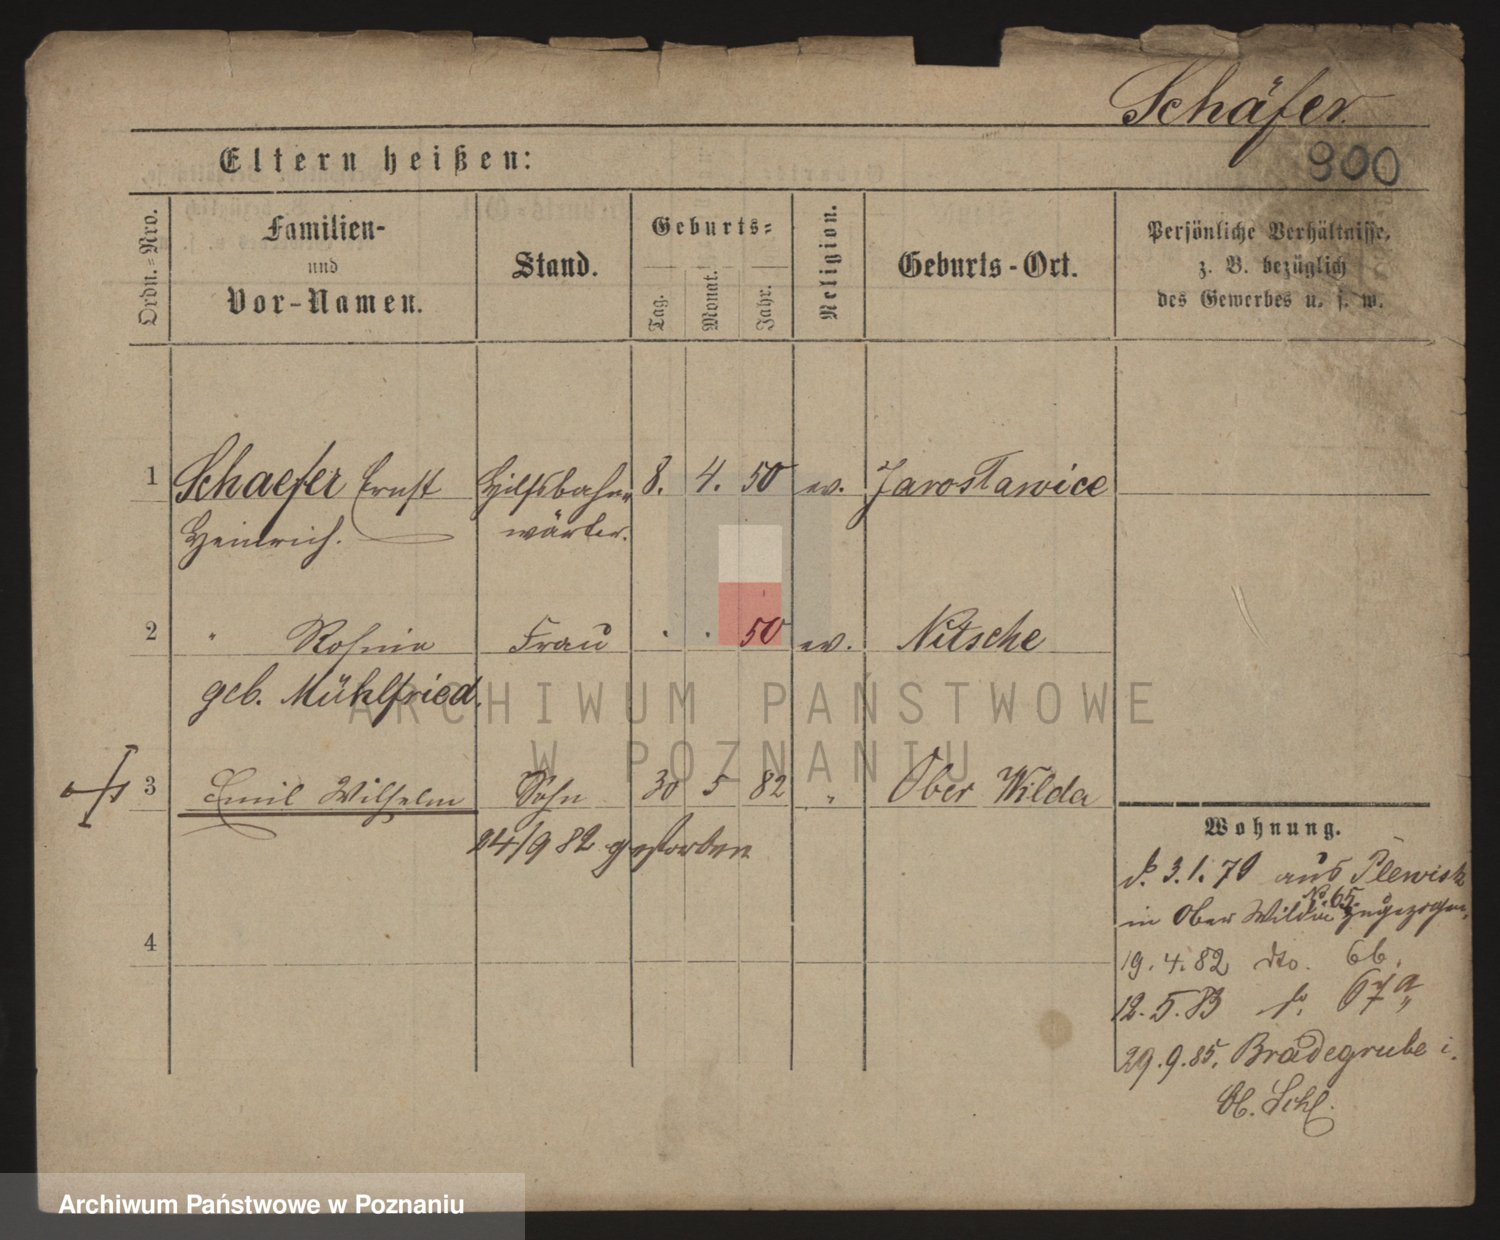 Schäfer.
900
Eltern heißen:
Ordn.=Nro.
Familien-
und
Vor-Namen.
Stand.
Geburts=
Tag.
Monat.
Jahr.
Religion.
Geburts-Ort.
Persönliche Verhältnisse,
z. B. bezüglich
des Gewerbes u. s. w.
1 Schaefer Ernst Hilfsbahn 8. 4. 50 ev. Jarosławice
Heinrich. wärter.
2 " Rosina Frau . . 50 ev. Nitsche
geb. Mühlfried.
3 Emil Wilhelm Sohn 30 5 82 " Ober Wilda
24/9 82 gestorben
4
Wohnung.
d. 3.1.79 aus Plewisk
in Ober Wilda No 65. zugezogen,
19.4.82 dto. 66.
12.5.83 67a
29.9.85. Bradegrube i.
Ob. Schl.
ARCHIWUM PAŃSTWOWE
W POZNANIU
Archiwum Państwowe w Poznaniu